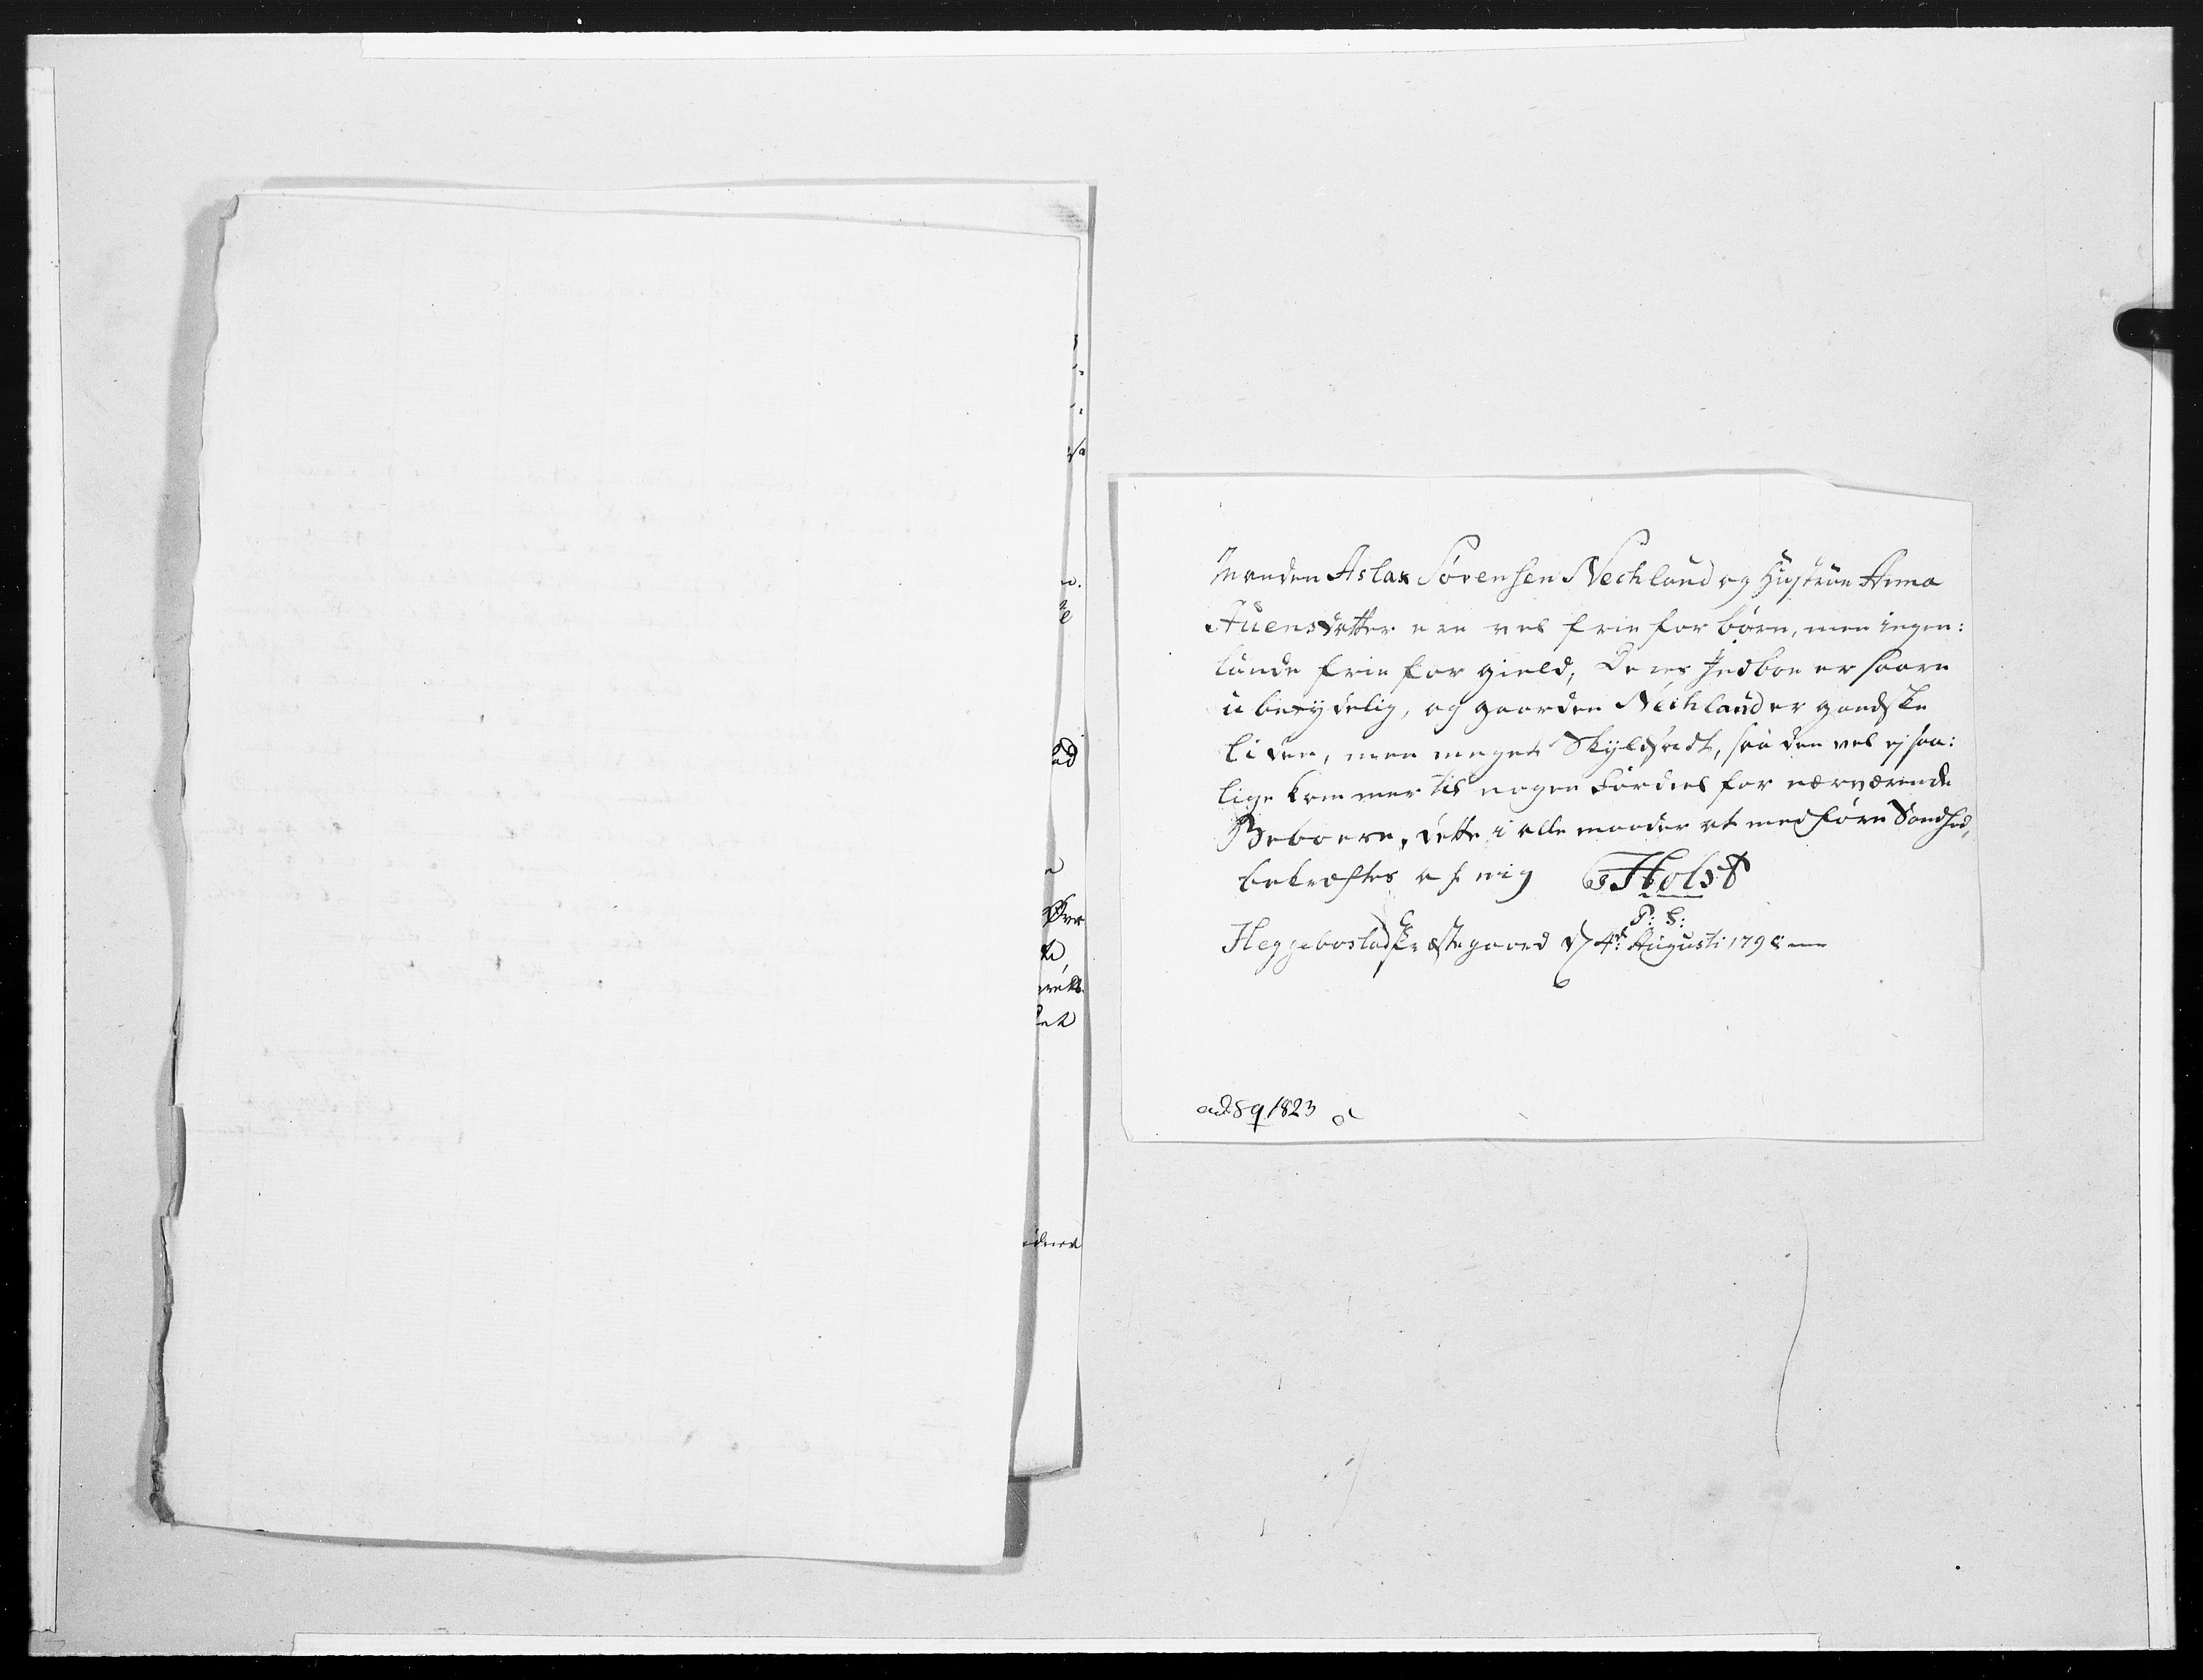 Manden Aslak Sørensen Nechland og Hustrue Anna
Auensdatter ere vel frie for børn, men ingen:
lunde frie for gield, Deres Indboe er saare
ubetydelig, og gaarden Nechland er gandske
liden, men meget Skyldsadt, saa den vel ej saa:
lige kommer til nogen Fordeel for nærværende
Beboere, dette i alle maader at medføre Sandhed,
bekræftes af mig GHolst
P: L:
Heggebostad Præstegaard d 4de Augusti 1798
ad 89 1823 a